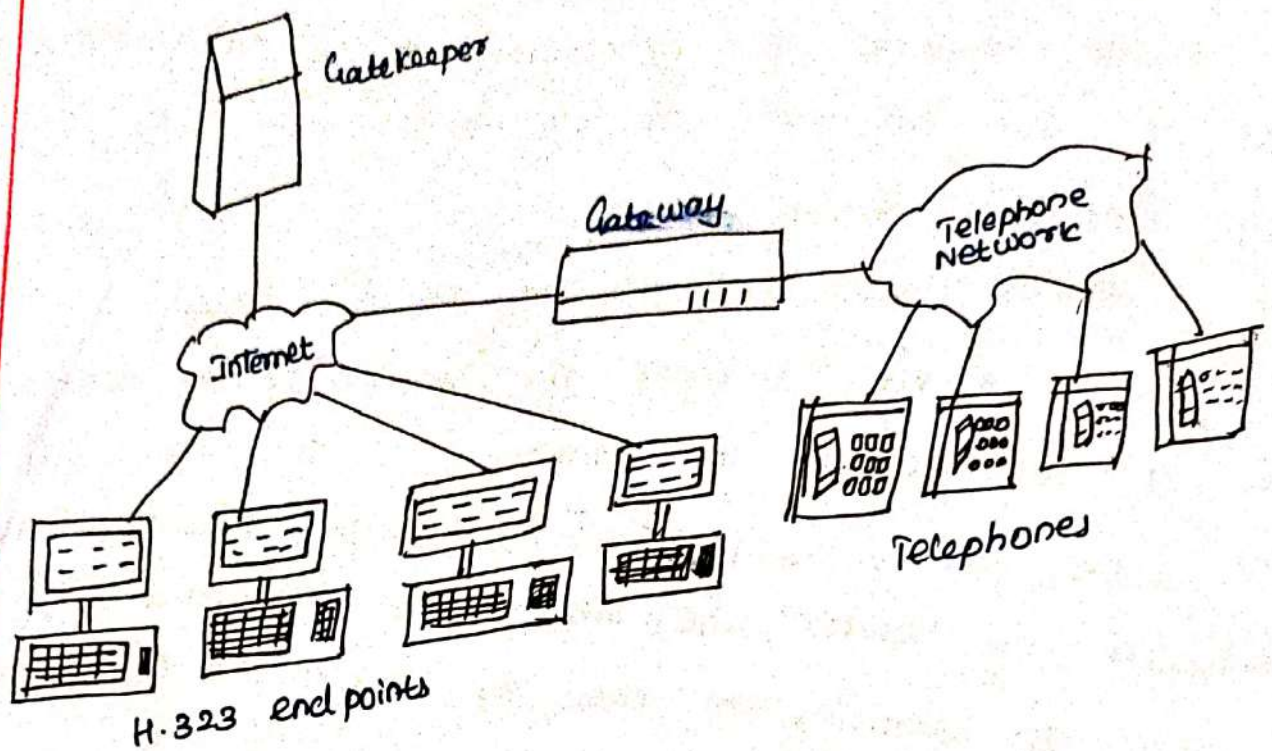 Gatekeeper
Gateway
Telephone
Network
Internet
Telephones
H.323 end points